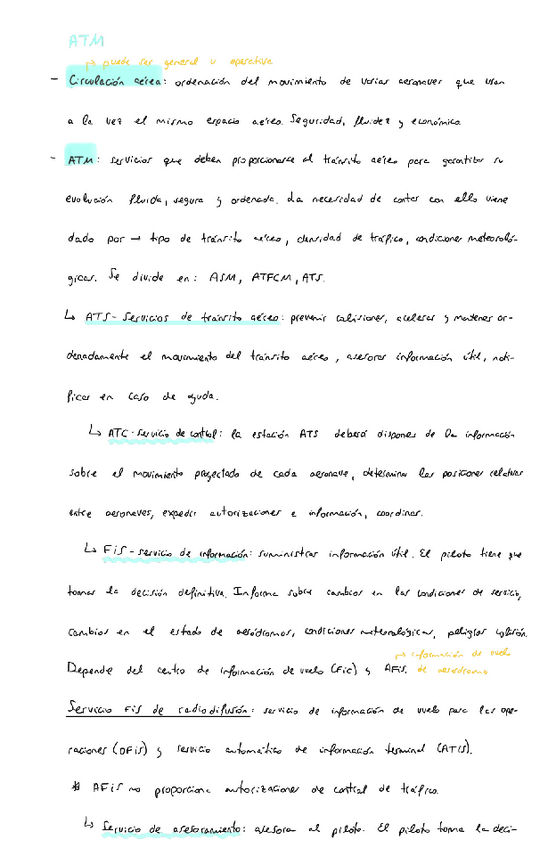 ATM
↳ puede ser general u operativa
- Circulación aérea: ordenación del movimiento de varias aeronaves que usan
a la vez el mismo espacio aéreo. Seguridad, fluidez y económica
- ATM: servicios que deben proporcionarse al tránsito aéreo para garantizar su
evolución fluida, segura y ordenada. La necesidad de contar con ello viene
dado por → tipo de tránsito aéreo, densidad de tráfico, condiciones meteoroló-
gicas. Se divide en: ASM, ATFCM, ATS.
↳ ATS - Servicios de tránsito aéreo: prevenir colisiones, acelerar y mantener or-
denadamente el movimiento del tránsito aéreo, asesorar información útil, noti-
ficar en caso de ayuda.
↳ ATC - Servicio de control: la estación ATS deberá disponer de la información
sobre el movimiento proyectado de cada aeronave, determinar las posiciones relativas
entre aeronaves, expedir autorizaciones e información, coordinar.
↳ FiS - servicio de información: suministrar información útil. El piloto tiene que
tomar la decisión definitiva. Informa sobre cambios en las condiciones de servicio,
cambios en el estado de aeródromos, condiciones meteorológicas, peligros colisión.
↳ información de vuelo
Depende del centro de información de vuelo (Fic) y AFiS. de aeródromo
Servicio FiS de radiodifusión: servicio de información de vuelo para las ope-
raciones (OFiS) y servicio automático de información terminal (ATiS).
* AFiS no proporciona autorizaciones de control de tráfico.
↳ Servicio de asesoramiento: asesora al piloto. El piloto toma la deci-